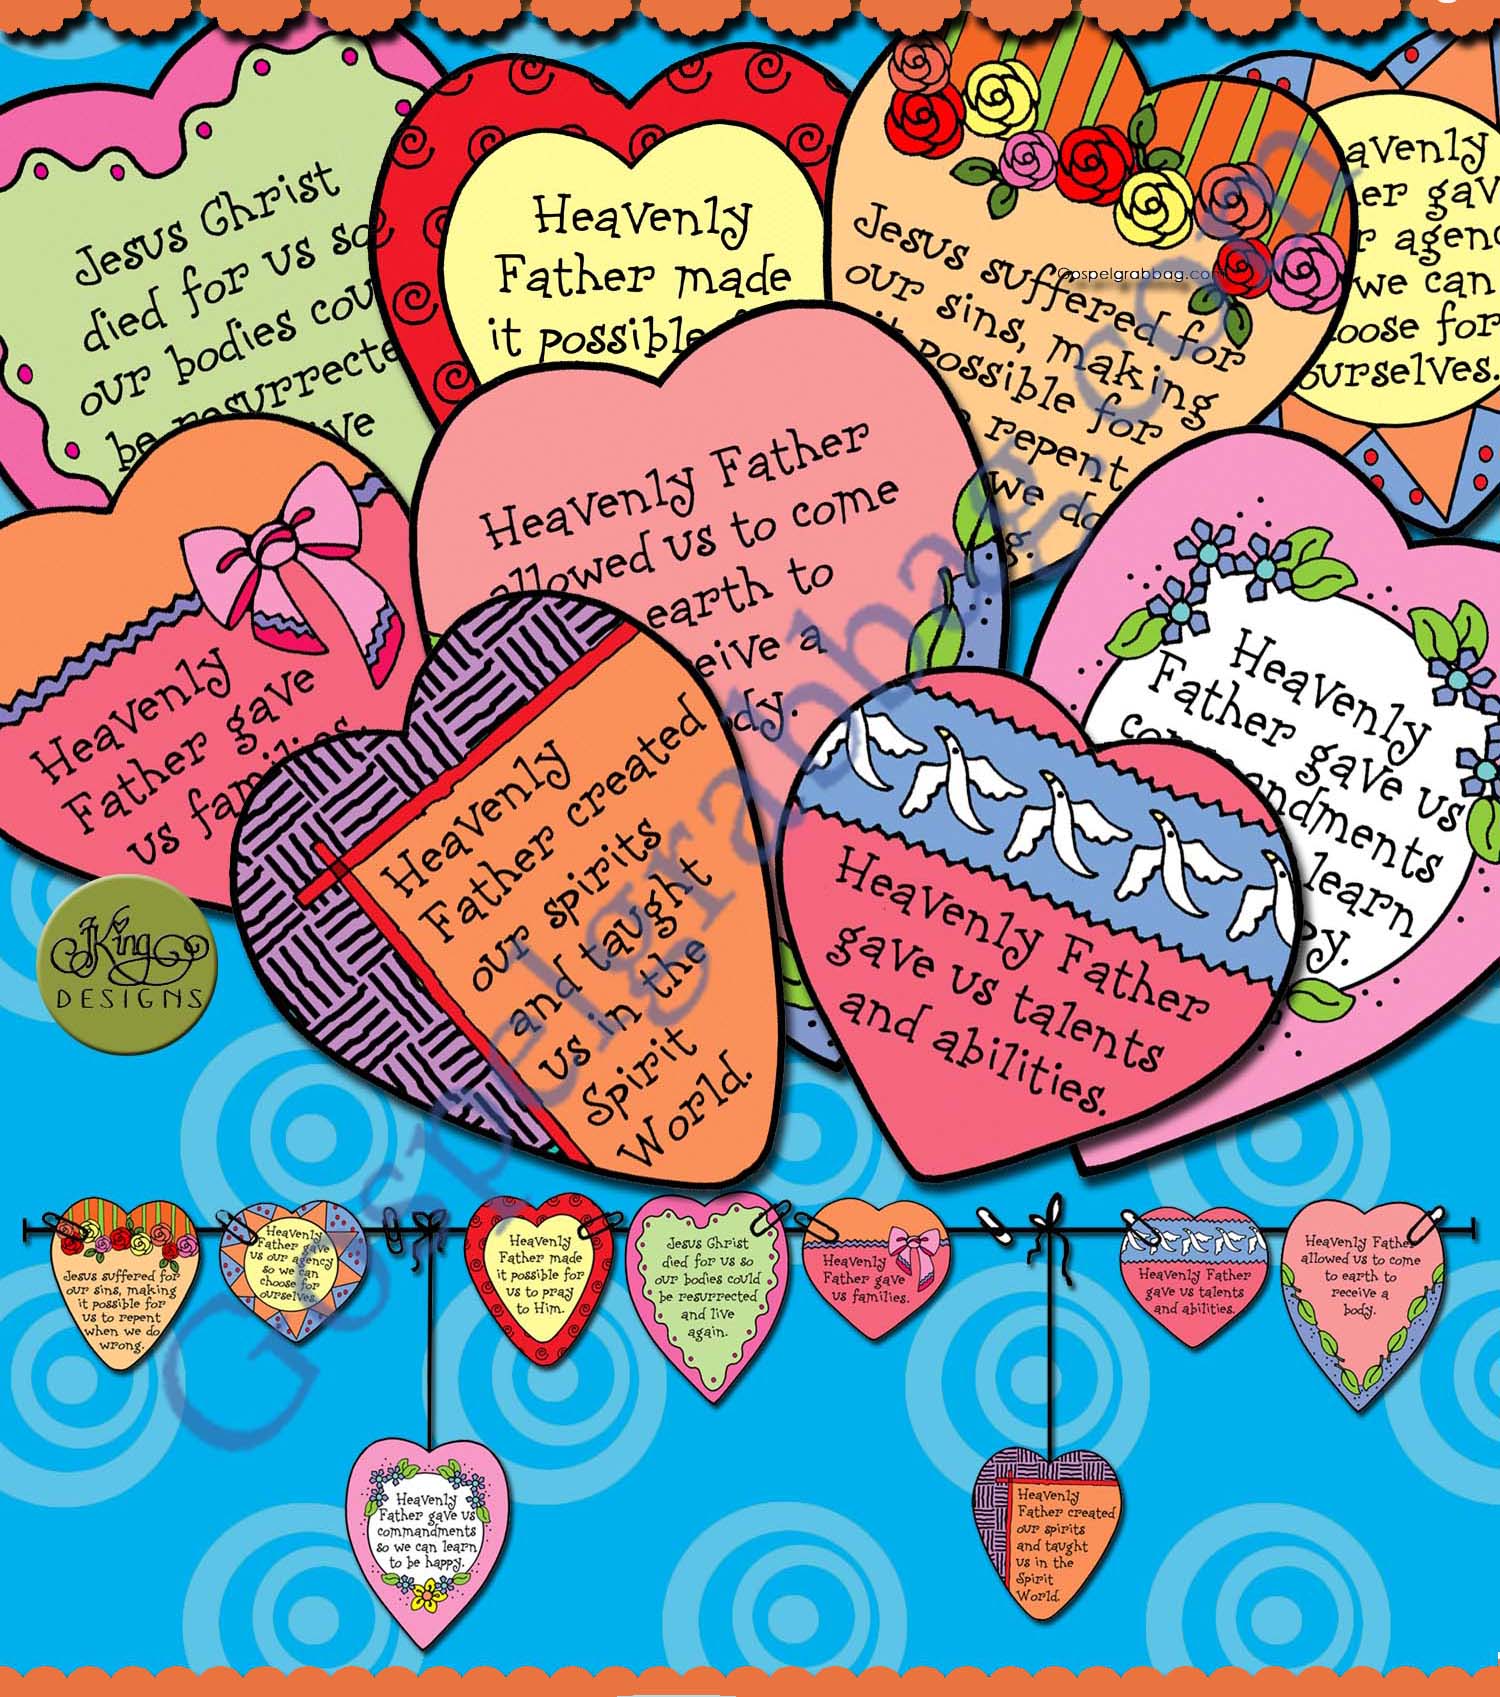 Jesus Christ
died for us so
our bodies
be
Heavenly
Father made
it possible
Jesus suffered for
our sins, making
possible for
repent
we do
Gospelgrabbag.com
we can
ourselves.
Heavenly Father
allowed us to come
earth to
a
Heavenly
Father gave
us families.
Heavenly
Father created
our spirits
and taught
us in the
Spirit
World.
Heavenly Father
gave us talents
and abilities.
Heavenly
Father gave us
learn
King
DESIGNS
Gospelgrabbag.com
Jesus suffered for
our sins, making
it possible for
us to repent
when we do
wrong.
Heavenly
Father gave
us our agency
so we can
choose for
ourselves.
Heavenly
Father made
it possible for
us to pray
to Him.
Jesus Christ
died for us so
our bodies could
be resurrected
and live
again.
Heavenly
Father gave
us families.
Heavenly Father
gave us talents
and abilities.
Heavenly Father
allowed us to come
to earth to
receive a
body.
Heavenly
Father gave us
commandments
so we can learn
to be happy.
Heavenly
Father created
our spirits
and taught
us in the
Spirit
World.